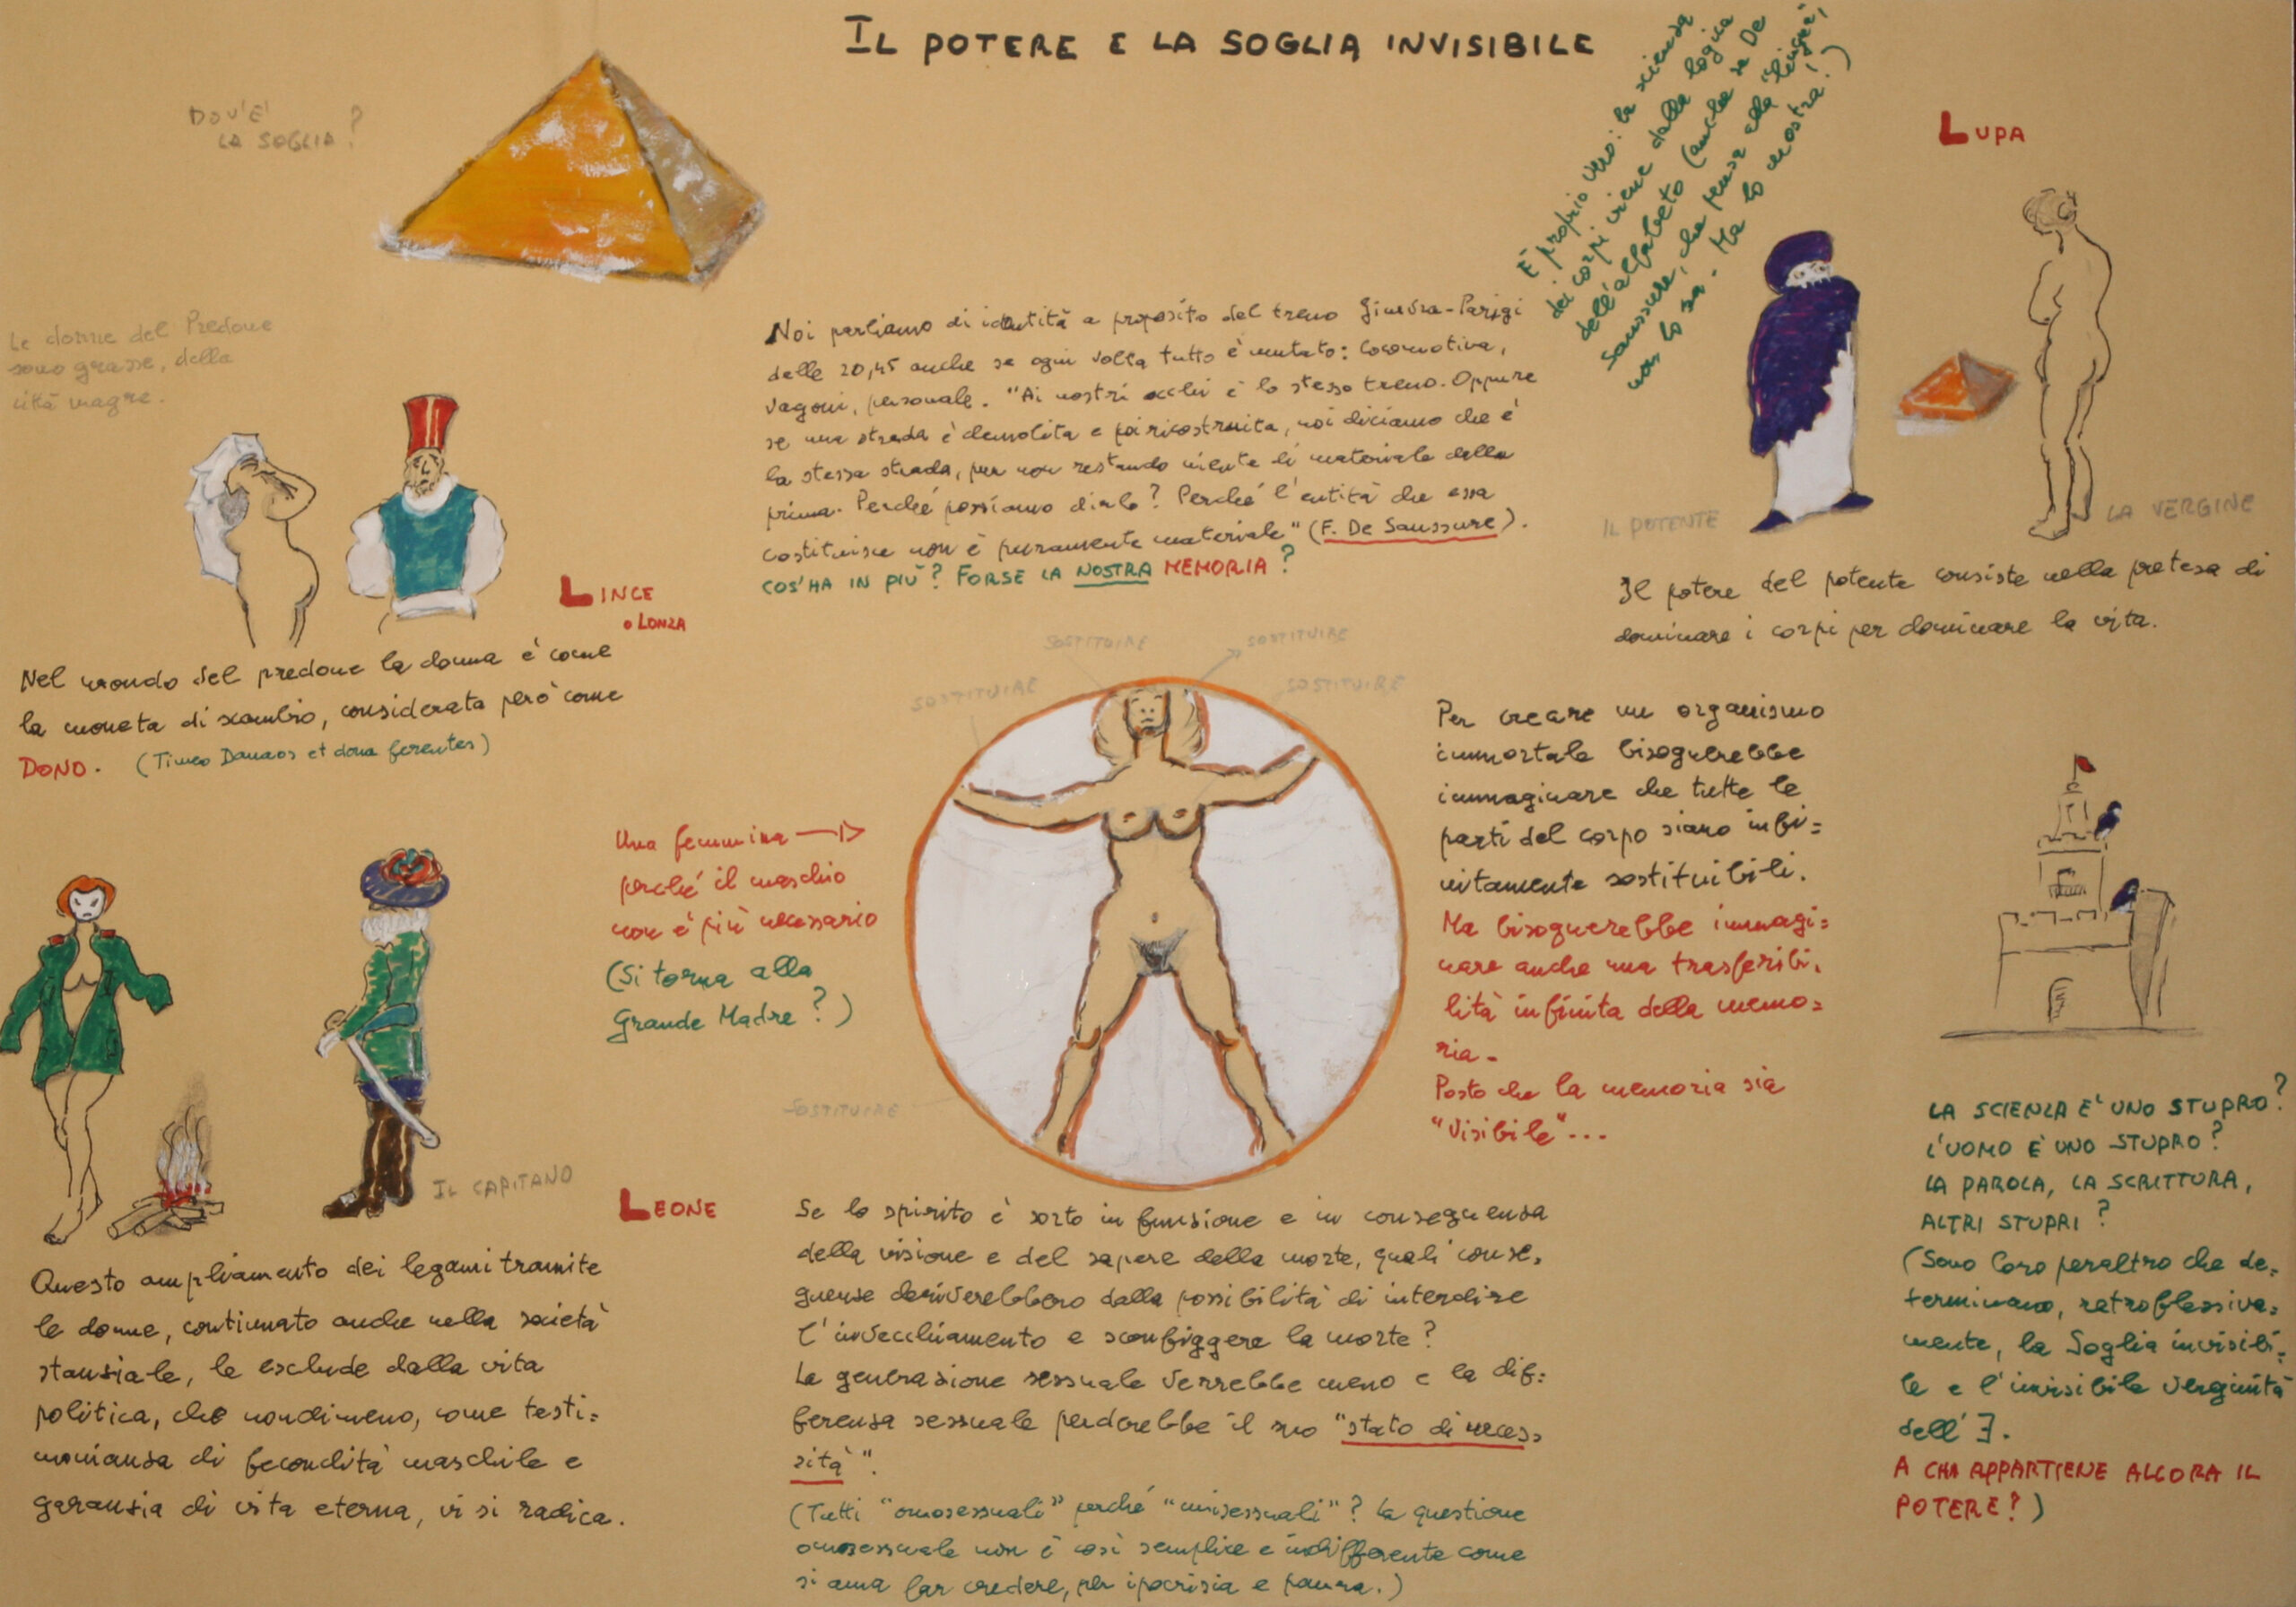 IL POTERE E LA SOGLIA INVISIBILE
DOV'E'
LA SOGLIA?
Le donne del Predone
sono grasse, della
città magre.
LINCE
o LONZA
Nel mondo del predone la donna è come
la moneta di scambio, considerata però come
DONO. (Timeo Danaos et dona ferentes)
IL CAPITANO
LEONE
Questo ampliamento dei legami tramite
le donne, continuato anche nella società
stanziale, le esclude dalla vita
politica, che nondimeno, come testi=
monianza di fecondità maschile e
garanzia di vita eterna, vi si radica.
Noi parliamo di identità a proposito del treno Ginevra-Parigi
delle 20,45 anche se ogni volta tutto è mutato: locomotiva,
vagoni, personale. "Ai nostri occhi è lo stesso treno. Oppure
se una strada è demolita e poi ricostruita, noi diciamo che è
la stessa strada, pur non restando niente di materiale della
prima. Perché possiamo dirlo? Perché l'entità che essa
costituisce non è puramente materiale" (F. De Saussure).
COS'HA IN PIÙ? FORSE LA NOSTRA MEMORIA?
SOSTITUIRE
SOSTITUIRE
SOSTITUIRE
SOSTITUIRE
SOSTITUIRE
Una femmina
perché il maschio
non è più necessario
(Si torna alla
Grande Madre?)
Se lo spirito è sorto in funzione e in conseguenza
della visione e del sapere della morte, quali conse,
guenze deriverebbero dalla possibilità di interdire
l'invecchiamento e sconfiggere la morte?
La generazione sessuale verrebbe meno e la dif=
ferenza sessuale perderebbe il suo "stato di neces,
sità".
(Tutti "omosessuali" perché "unisessuali"? La questione
omosessuale non è così semplice e indifferente come
si ama far credere, per ipocrisia e paura.)
È proprio vero: la scienza
dei corpi viene dalla logica
dell'alfabeto (anche se De
Saussure, che pensa alla "lingua",
non lo sa. Ma lo mostra!)
LUPA
IL POTENTE
LA VERGINE
Il potere del potente consiste nella pretesa di
dominare i corpi per dominare la vita.
Per creare un organismo
immortale bisognerebbe
immaginare che tutte le
parti del corpo siano infi=
nitamente sostituibili.
Ma bisognerebbe immagi=
nare anche una trasferibi,
lità infinita della memo=
ria.
Posto che la memoria sia
"visibile"...
LA SCIENZA E' UNO STUPRO?
L'UOMO E' UNO STUPRO?
LA PAROLA, LA SCRITTURA,
ALTRI STUPRI?
(Sono loro peraltro che de=
terminano, retroflessiva=
mente, la Soglia invisibi=
le e l'invisibile verginità
dell'∃.
A CHI APPARTIENE ALLORA IL
POTERE?)